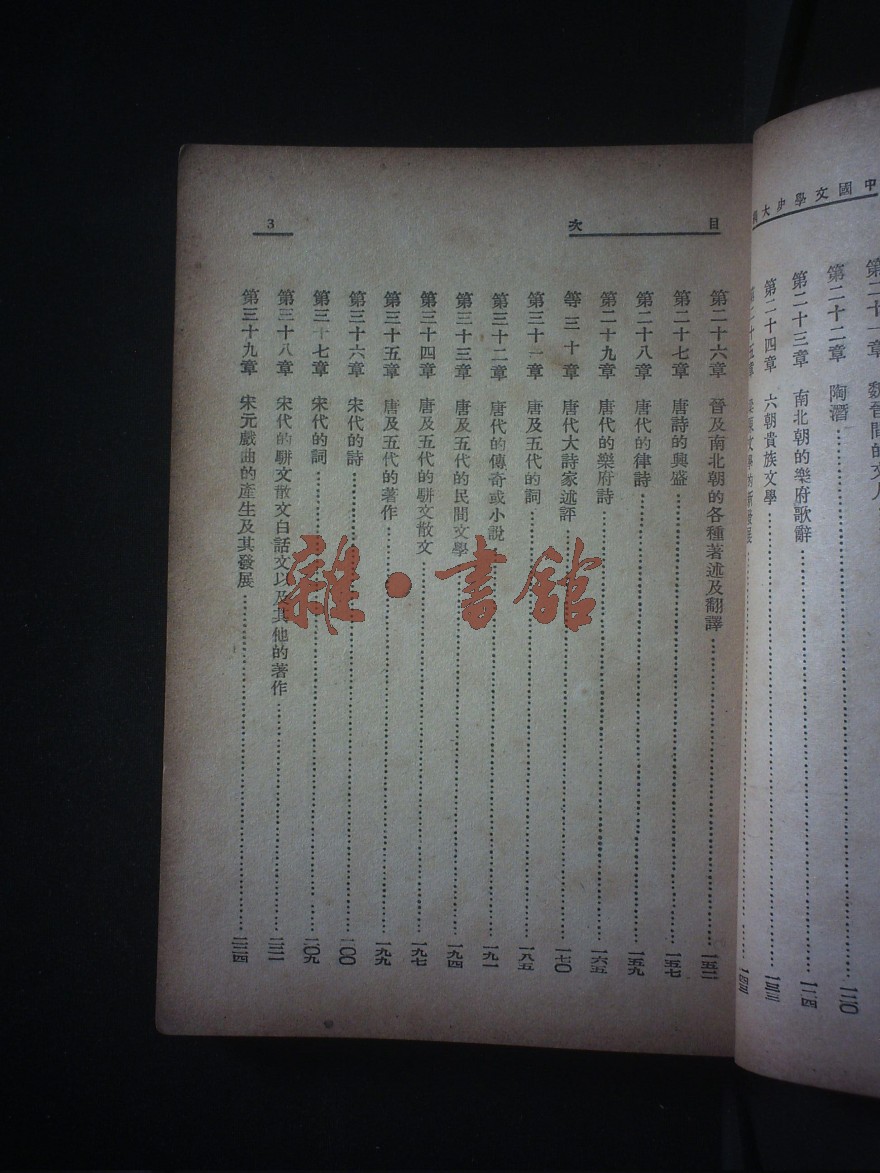 中國文學史大綱
第二十一章 魏晉間的文人
第二十二章 陶潛……一二〇
第二十三章 南北朝的樂府歌辭……一二四
第二十四章 六朝貴族文學……一三三
目次 3
第二十六章 晉及南北朝的各種著述及翻譯……一五二
第二十七章 唐詩的興盛……一五七
第二十八章 唐代的律詩……一五九
第二十九章 唐代的樂府詩……一六五
等三十章 唐代大詩家述評……一七〇
第三十一章 唐及五代的詞……一八五
第三十二章 唐代的傳奇或小說……一九一
第三十三章 唐及五代的民間文學……一九四
第三十四章 唐及五代的駢文散文……一九七
第三十五章 唐及五代的著作……一九九
第三十六章 宋代的詩……二〇〇
第三十七章 宋代的詞……二〇九
第三十八章 宋代的駢文散文白話文以及其他的著作……二二一
第三十九章 宋元戲曲的產生及其發展……二二四
雜·書館